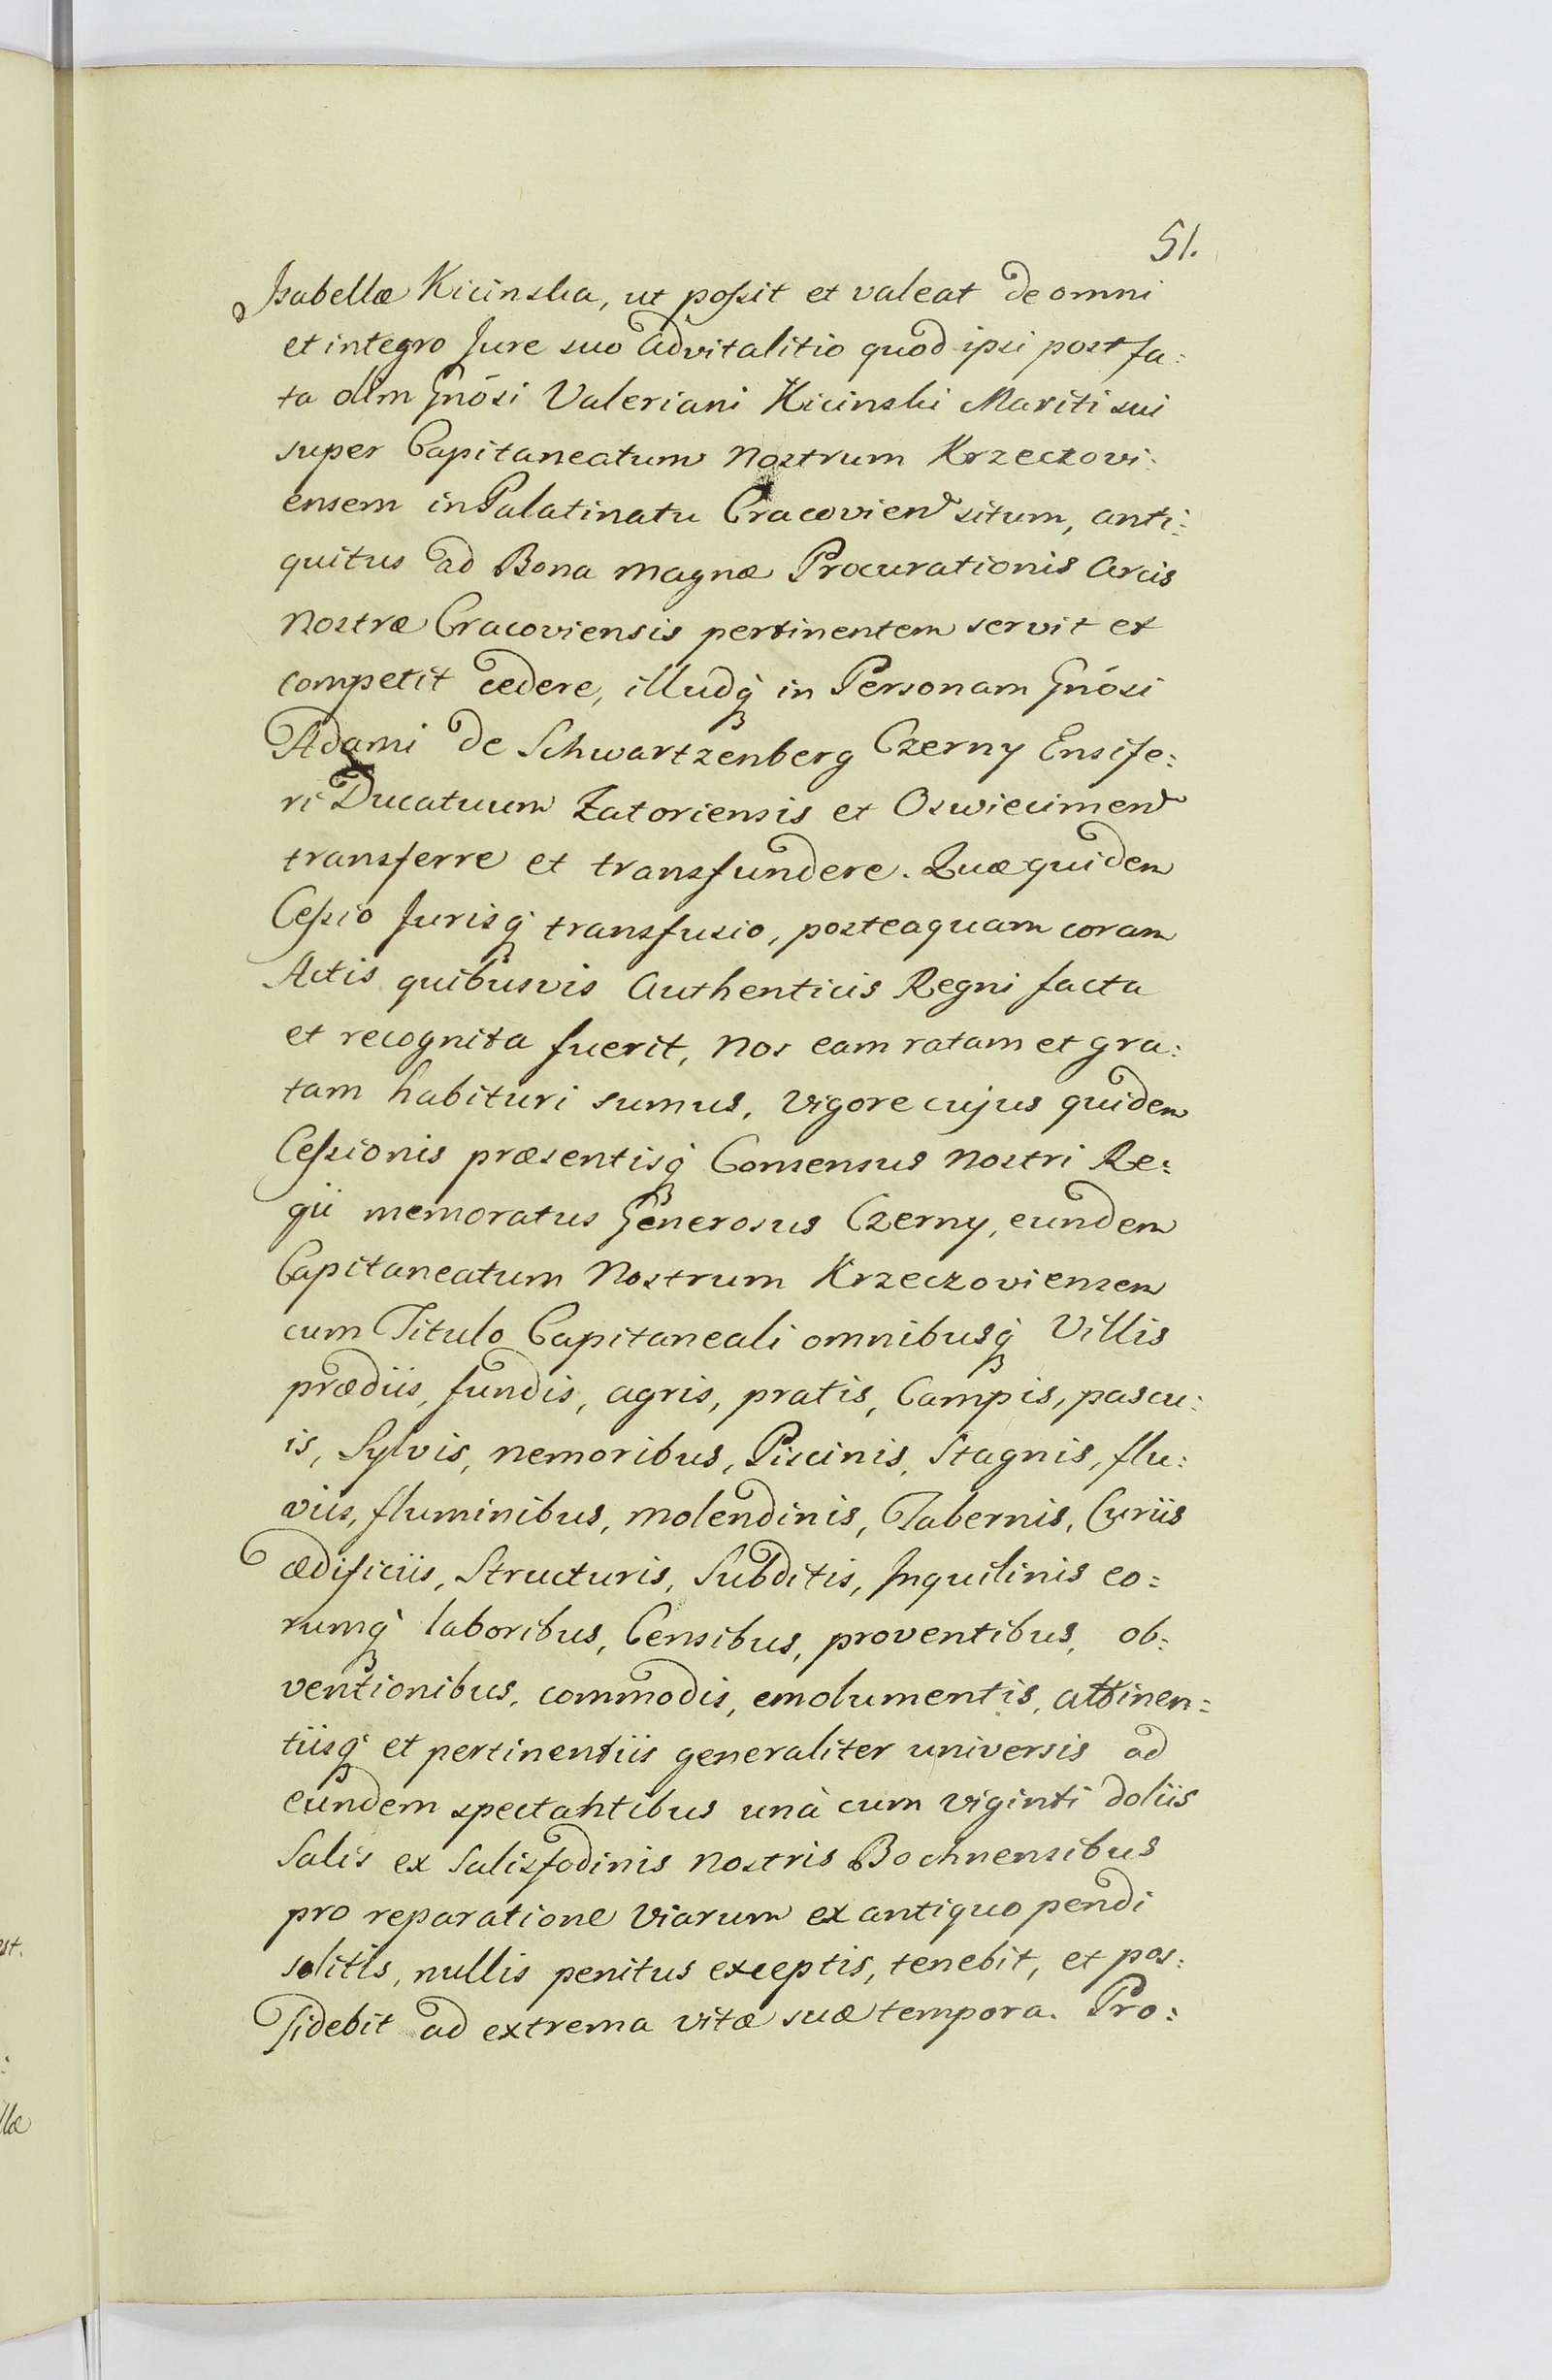 51.
Isabellæ Kicinska, ut possit et valeat de omni
et integro Jure suo advitalitio quod ipsi post fa:
ta olim Gnósi Valeriani Kicinski Mariti sui
super Capitaneatum Nostrum Krzeczovi:
ensem in Palatinatu Cracovien situm, anti:
quitus ad Bona magnæ Procurationis Arcis
Nostræ Cracoviensis pertinentem servit et
competit cedere, illudq́ in Personam Gnósi
Adami de Schwartzenberg Czerny Ensife:
ri Ducatuum Zatoriensis et Oswiecimen
transferre et transfundere. Quæ quidem
Cessio Jurisq́ transfusio, posteaquam coram
Actis quibusvis Authenticis Regni facta
et recognita fuerit, Nos eam ratam et gra:
tam habituri sumus, vigore cujus quidem
Cessionis præsentisq́ Consensus Nostri Re:
gii memoratus Generosus Czerny, eundem
Capitaneatum Nostrum Krzeczoviensem
cum Titulo Capitaneali omnibusq́ Villis
prædiis, fundis, agris, pratis, Campis, pascu:
is, Sylvis, nemoribus, Piscinis, Stagnis, flu:
viis, fluminibus, molendinis, Tabernis, Curiis
ædificiis, Structuris, Subditis, Inquilinis eo:
rumq́ laboribus, Censibus, proventibus, ob:
ventionibus, commodis, emolumentis, attinen:
tiisq́ et pertinentiis generaliter universis ad
eundem spectantibus unà cum viginti doliis
Salis ex Salisfodinis Nostris Bochnensibus
pro reparatione Viarum ex antiquo pendi
solitis, nullis penitus exceptis, tenebit, et pos:
sidebit ad extrema vitæ suæ tempora. Pro:
st.
llæ